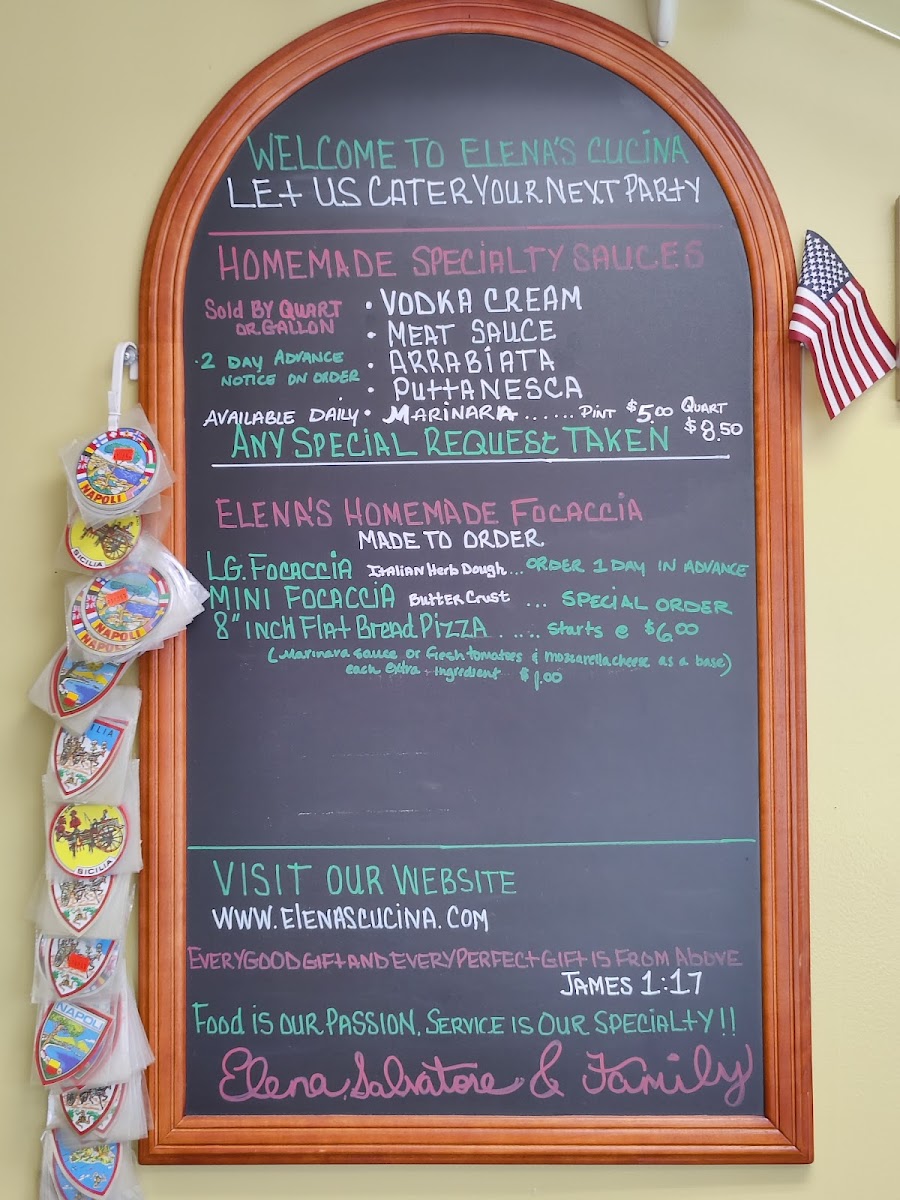 WELCOME TO ELENA'S CUCINA
LEt US CATER YOUR NEXT PARTY
HOMEMADE SPECIALTY SAUCES
Sold BY QUART
OR GALLON
• VODKA CREAM
• MEAT SAUCE
·2 DAY ADVANCE
NOTICE ON ORDER
• ARRABIATA
• PUttANESCA
AVAILABLE DAILY • MARINARA ...... PINT $5.00 QUART
$8.50
ANY SPECIAL REQUESt TAKEN
ELENA'S HOMEMADE FOCACCIA
MADE TO ORDER
LG. FOCACCIA ItALIAN Herb Dough... ORDER 1 DAY IN ADVANCE
MINI FOCACCIA BUtteR CRUSt ... SPECIAL ORDER
8" INCH FlAt BREAD PIZZA ..... Starts @ $6.00
(Marinara sauce or fresh tomatoes & mozzarella cheese as a base)
each extra ingredient $1.00
VISIT OUR WEBSITE
WWW.ElENASCUCINA.COM
EVERY GOOD GIFt AND EVERY PERFECt GIFt IS FROM ABOVE
JAMES 1:17
FOOD IS OUR PASSION, SERVICE IS OUR SPECIALtY!!
Elena, Salvatore & Family
NAPOLI
SICILIA
NAPOLI
NAPOLI
SICILIA
NAPOLI